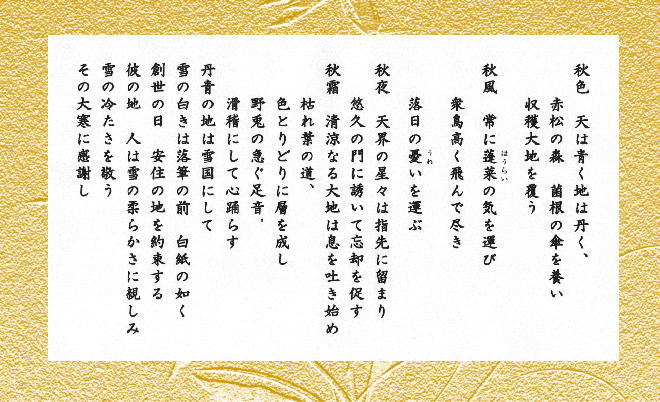 秋色　天は青く地は丹く、
赤松の森　菌根の傘を養い
収穫大地を覆う
秋風　常に蓬莱の気を運び
ほうらい
衆鳥高く飛んで尽き
落日の憂いを運ぶ
うれ
秋夜　天界の星々は指先に留まり
悠久の門に誘いて忘却を促す
秋霜　清涼なる大地は息を吐き始め
枯れ葉の道、
色とりどりに層を成し
野兎の急ぐ足音、
滑稽にして心踊らす
丹青の地は雪国にして
雪の白きは落筆の前　白紙の如く
創世の日　安住の地を約束する
彼の地　人は雪の柔らかさに親しみ
雪の冷たさを敬う
その大寒に感謝し